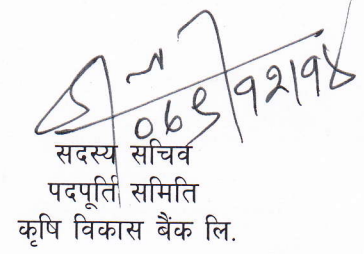 ०६९/१२/१४
सदस्य सचिव
पदपूर्ति समिति
कृषि विकास बैंक लि.